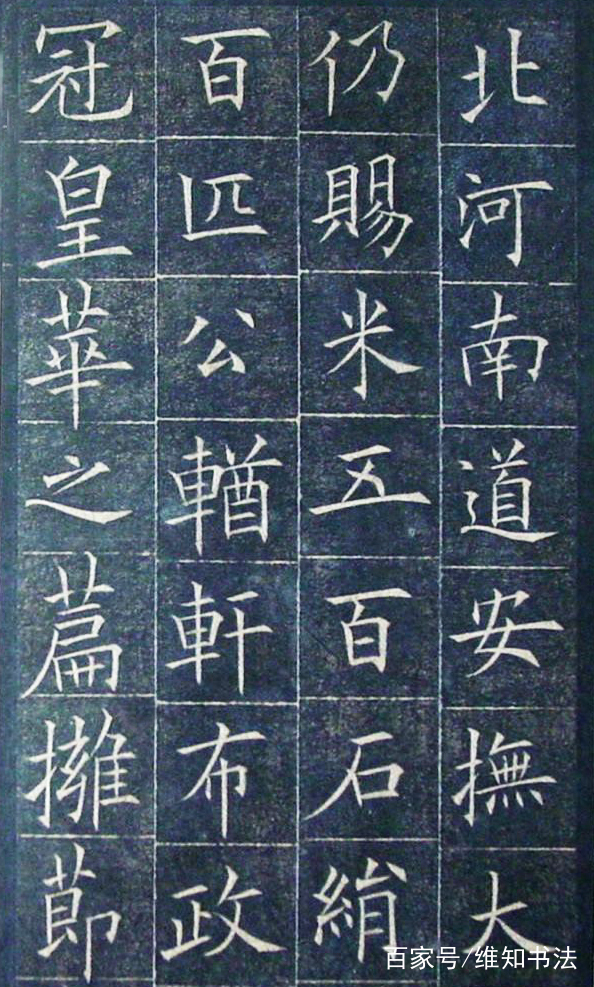 北河南道安撫大
仍賜米五百石絹
百匹公輶軒布政
冠皇華之篇擁節
百家号/维知书法